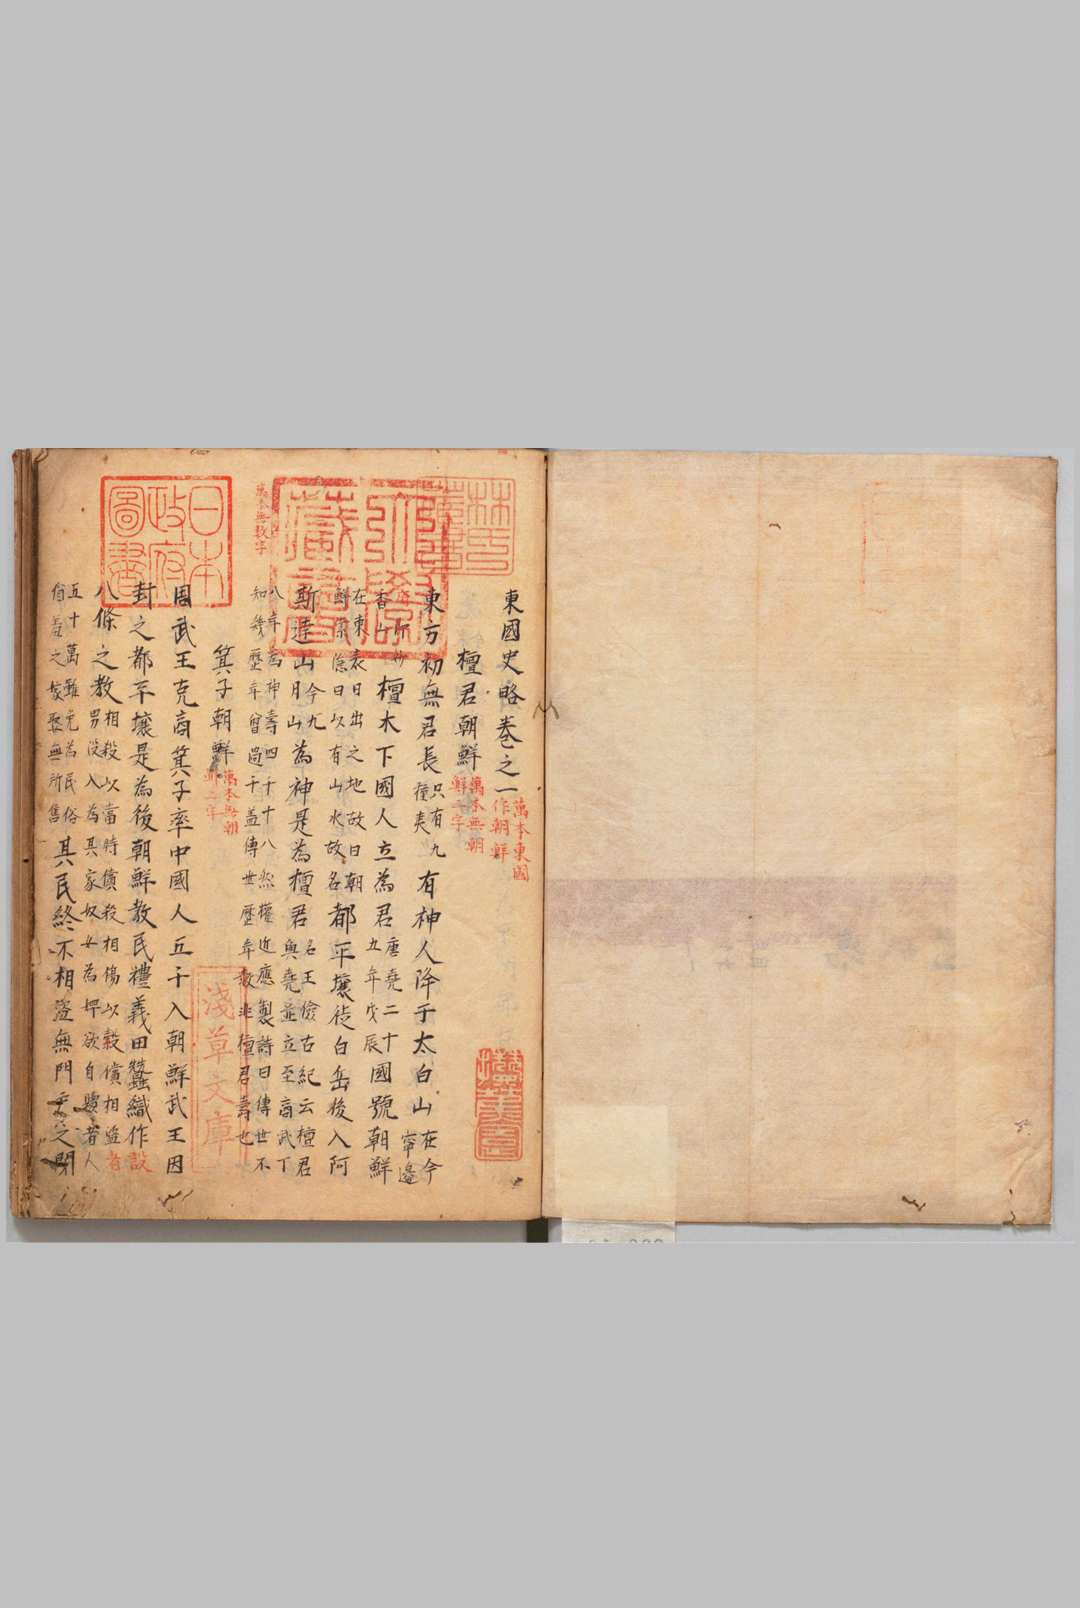 東國史略卷之一
萬本東國
作朝鮮
檀君朝鮮
萬本無朝
鮮二字
東方初無君長
只有九
種夷
有神人降于太白山
在今
寧邊
府妙
香山
檀木下國人立為君
唐堯二十
五年戊辰
國號朝鮮
在東表日出之地故曰朝
鮮索隱曰以有山水故名
都平壤徙白岳後入阿
斯達山
今九
月山
為神是為檀君
名王儉古紀云檀君
與堯並立至商武丁
八年為神壽四十八
知幾歷年曾過千盖傳世歷年數非檀君壽也
權近應製詩曰傳世不
萬本無數字
箕子朝鮮
萬本無朝
鮮二字
周武王克商箕子率中國人五千入朝鮮武王因
封之都平壤是為後朝鮮教民禮義田蠶織作設
八條之教
相殺以當時償殺相傷以穀償相盜者
男沒入為其家奴女為婢欲自贖者人
五十萬雖免為民俗
猶羞之嫁娶無所售
其民終不相盜無門戶之閉
日本
政府
圖書
淺草文庫
林氏
藏書